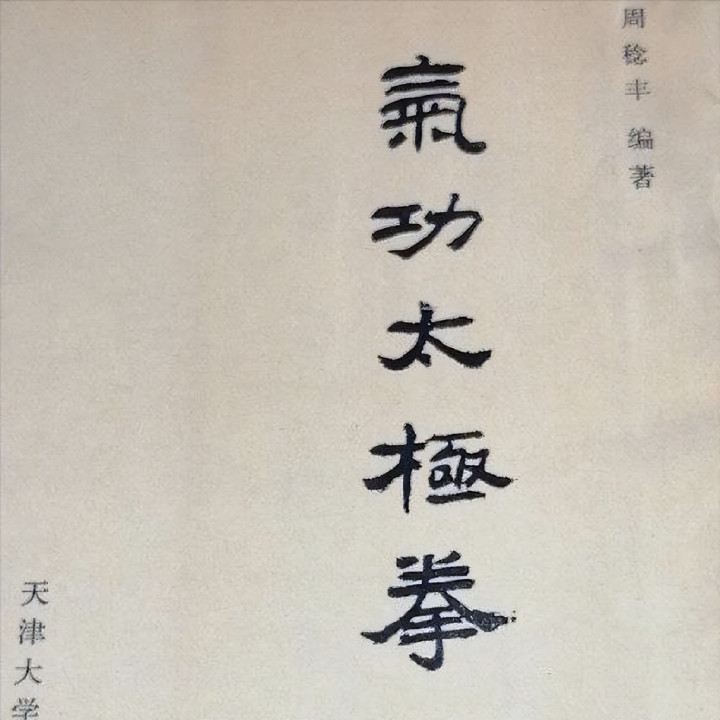 周稔丰 编著
氣功太極拳
天津大学